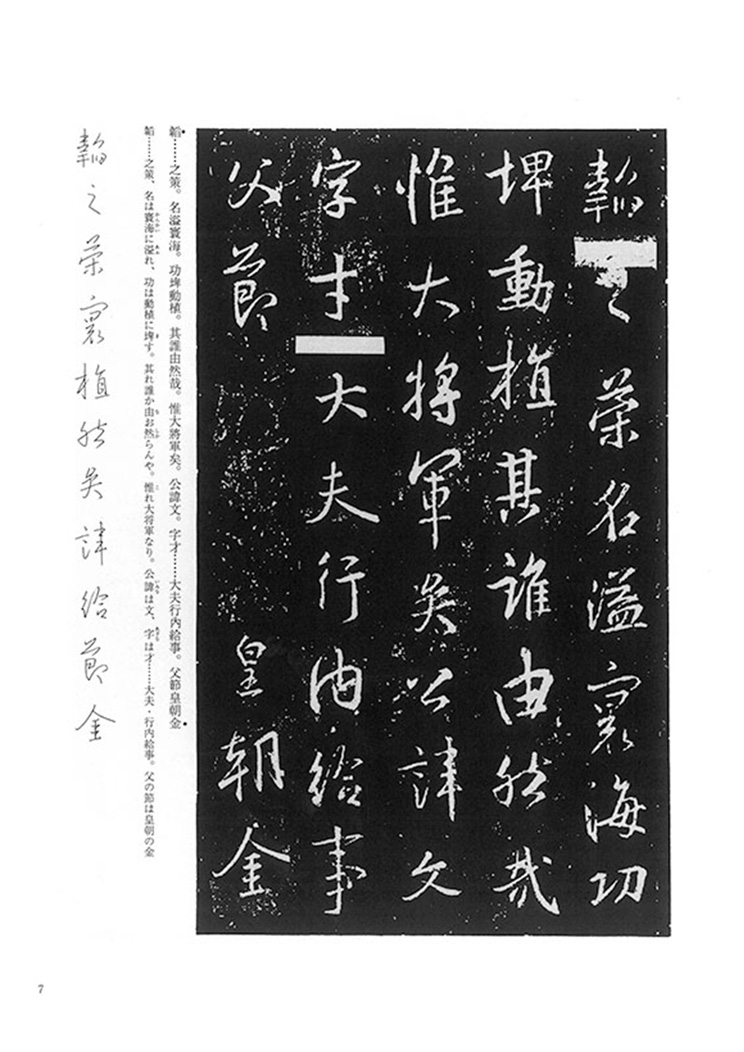 韜之策名溢寰海功
埤動植其誰由然哉
惟大將軍矣公諱文
字才大夫行内給事
父節皇朝金
韜……之策。名溢寰海。功埤動植。其誰由然哉。惟大將軍矣。公諱文。字才……大夫行内給事。父節皇朝金
韜……之策、名は寰海に溢れ、功は動植に埤す。其れ誰か由お然らんや。惟れ大将軍なり。公諱は文、字は才……大夫・行内給事。父の節は皇朝の金
韜之策寰植然矣諱給節金
7